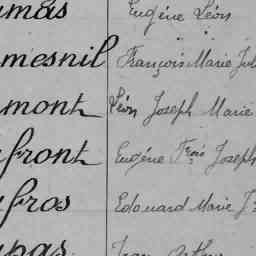 umas Eugéne Léon
mesnil François Marie Jul
mont Léon Joseph Marie
front Eugéne Frois Joseph
fros Edouard Marie J
pas Jean Arthur